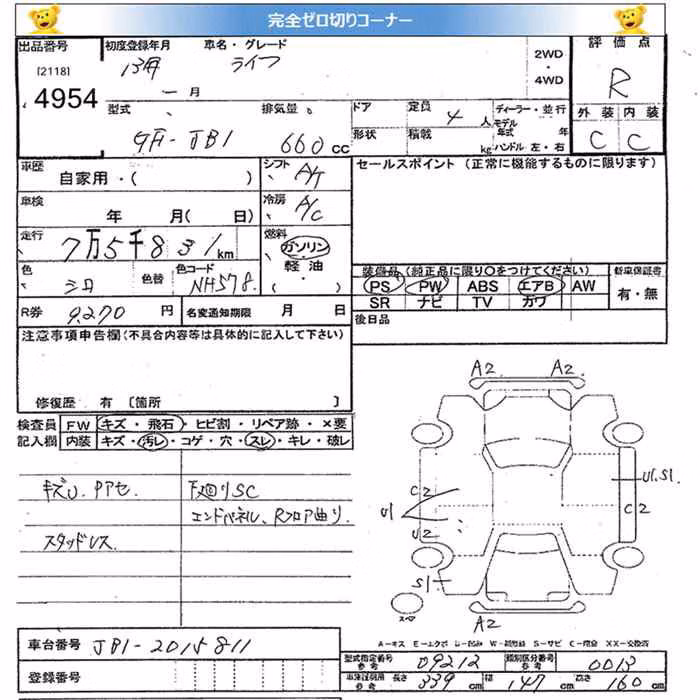 完全ゼロ切りコーナー
出品番号 初度登録年月 車名・グレード 評価点
[2118] 13年 ライフ 2WD・4WD R
4954 一 月
型式 排気量 ドア 定員 4 人 ディーラー・並行 外装 内装
GF-JB1 660 cc 形状 積載 kg モデル年式 年 ハンドル 左・右 C C
車歴 自家用・( ) シフト A/T セールスポイント (正常に機能するものに限ります)
車検 年 月( 日) 冷房 A/C
走行 7万5千831 km 燃料 ガソリン・軽油・( )
色 シロ 色替 色コード NH578
装備品 (純正品に限り○をつけてください) 新車保証書
PS PW ABS エアB AW 有・無
SR ナビ TV カワ
R券 9,270 円 名変通知期限 月 日 後日品
注意事項申告欄(不具合内容等は具体的に記入して下さい)
修復歴 有 [箇所 ]
検査員 FW キズ・飛石・ヒビ割・リペア跡・×要
記入欄 内装 キズ・汚レ・コゲ・穴・スレ・キレ・破レ
キズU. Pアセ. 下廻りSC
エンドパネル、Rフロア曲り.
スタッドレス.
A2. A2.
U1.S1.
C2 C2
U1
U2
S1
スペア
A2
A-キズ E-エクボ U-凹み W-補修跡 S-サビ C-腐食 XX-交換済
車台番号 JB1-2015811
型式指定番号 参考 09212 類別区分番号 参考 0013
登録番号
車検証諸元 参考 長さ 339 cm 幅 147 cm 高さ 160 cm